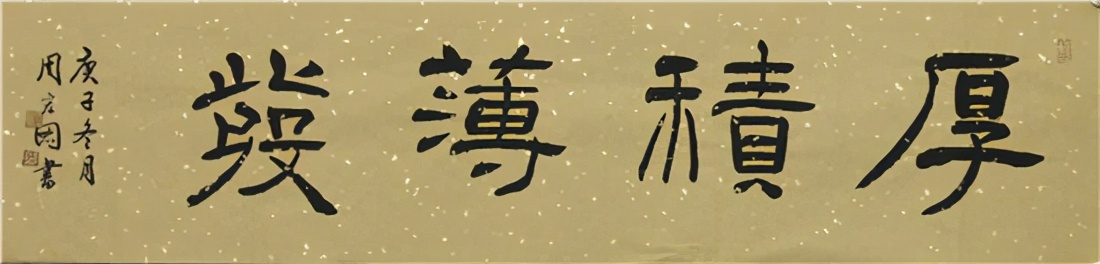 厚積薄發
庚子冬月
周宏國書